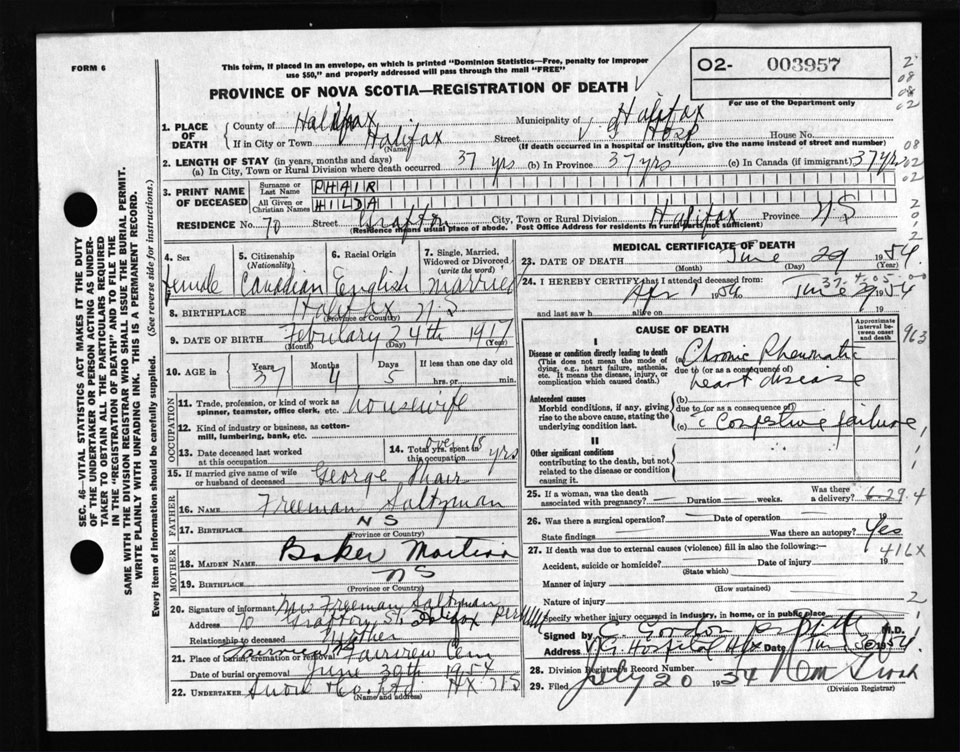 FORM 6
This form, if placed in an envelope, on which is printed "Dominion Statistics—Free, penalty for improper
use $50," and properly addressed will pass through the mail "FREE"
PROVINCE OF NOVA SCOTIA—REGISTRATION OF DEATH
O2- 003957
For use of the Department only
2
08
08
02
08
02
02
1. PLACE OF DEATH
County of Halifax
Municipality of Halifax
If in City or Town Halifax Street V G Hosp House No.
(Name) (If death occurred in a hospital or institution, give the name instead of street and number)
2. LENGTH OF STAY (in years, months and days)
(a) In City, Town or Rural Division where death occurred 37 yrs (b) In Province 37 yrs (c) In Canada (if immigrant) 37 yrs
3. PRINT NAME OF DECEASED
Surname or Last Name PHAIR
All Given or Christian Names HILDA
RESIDENCE No. 70 Street Grafton City, Town or Rural Division Halifax Province NS
(Residence means usual place of abode. Post Office Address for residents in rural parts not sufficient)
4. Sex female
5. Citizenship (Nationality) Canadian
6. Racial Origin English
7. Single, Married, Widowed or Divorced (write the word) married
8. BIRTHPLACE Halifax NS
9. DATE OF BIRTH February 24th 1917
(Month) (Day) (Year)
10. AGE in Years 37 Months 4 Days 5 If less than one day old hrs. or min.
OCCUPATION
11. Trade, profession, or kind of work as spinner, teamster, office clerk, etc. housewife
12. Kind of industry or business, as cotton-mill, lumbering, bank, etc.
13. Date deceased last worked at this occupation
14. Total yrs. spent in this occupation over 18 yrs
15. If married give name of wife or husband of deceased George Phair
FATHER
16. NAME Freeman Saltzman
17. BIRTHPLACE NS
(Province or Country)
MOTHER
18. MAIDEN NAME Baker
19. BIRTHPLACE NS
(Province or Country)
20. Signature of informant Mrs Freeman Saltzman
Address 70 Grafton St. Halifax
Relationship to deceased Mother
21. Place of burial, cremation or removal Fairview Cem
Date of burial or removal June 30th 1954
22. UNDERTAKER Snow Co Ltd Hx NS
(Name and address)
MEDICAL CERTIFICATE OF DEATH
23. DATE OF DEATH June 29 1954
(Month) (Day) (Year)
24. I HEREBY CERTIFY that I attended deceased from
Apr 1 1954 to June 29 1954
and last saw h alive on 19
CAUSE OF DEATH
Approximate interval between onset and death
963
I
Disease or condition directly leading to death
(This does not mean the mode of dying, e.g., heart failure, asthenia, etc. It means the disease, injury, or complication which caused death.)
(a) Chronic Rheumatic
due to (or as a consequence of)
heart disease
Antecedent causes
Morbid conditions, if any, giving rise to the above cause, stating the underlying condition last.
(b)
due to (or as a consequence of)
(c) Congestive failure
II
Other significant conditions
contributing to the death, but not related to the disease or condition causing it.
25. If a woman, was the death associated with pregnancy? Duration weeks. Was there a delivery? 6-29.4
26. Was there a surgical operation? Date of operation 19
State findings Was there an autopsy? Yes
416X
27. If death was due to external causes (violence) fill in also the following:—
Accident, suicide or homicide? Date of injury 19
(State which)
Manner of injury
(How sustained)
Nature of injury
Specify whether injury occurred in industry, in home, or in public place
Signed by Gordon M.D.
Address V.G. Hospital Hfx Date June 30 1954.
28. Division Registrar's Record Number
29. Filed July 20 1954
(Division Registrar)
SEC. 46—VITAL STATISTICS ACT MAKES IT THE DUTY
OF THE UNDERTAKER OR PERSON ACTING AS UNDER-
TAKER TO OBTAIN ALL THE PARTICULARS REQUIRED
IN THE "REGISTRATION OF DEATH" AND TO FILE THE
SAME WITH THE DIVISION REGISTRAR WHO SHALL ISSUE THE BURIAL PERMIT.
WRITE PLAINLY WITH UNFADING INK. THIS IS A PERMANENT RECORD.
Every item of information should be carefully supplied. (See reverse side for instructions.)